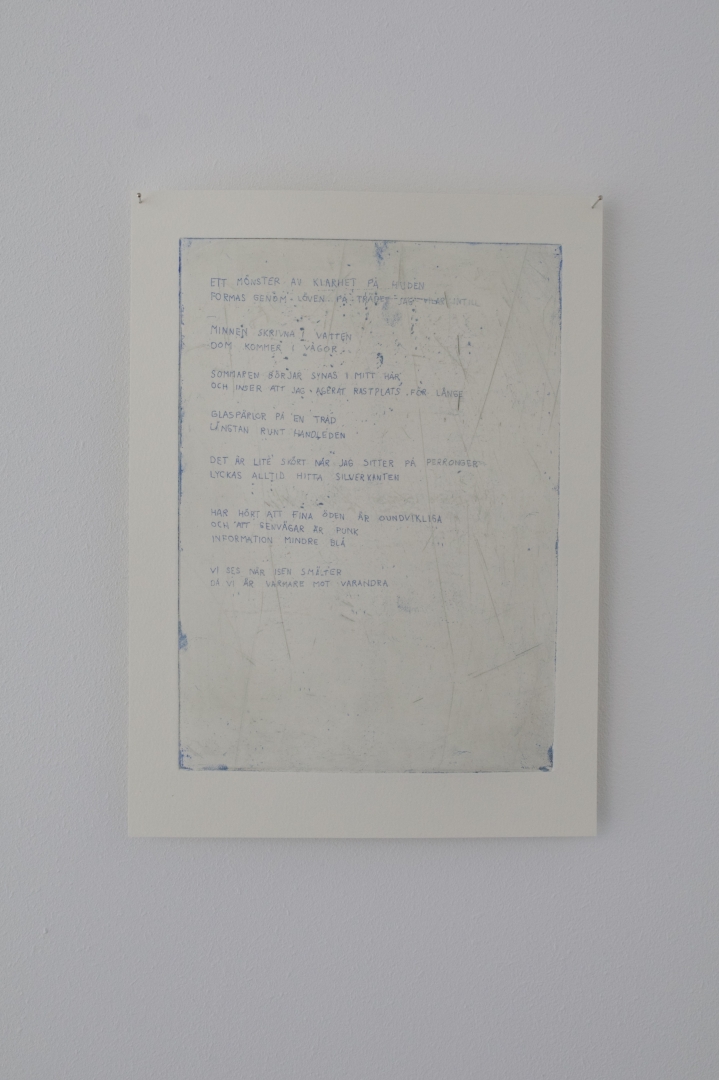 ETT MÖNSTER AV KLARHET PÅ HUDEN
FORMAS GENOM LÖVEN PÅ TRÄDET JAG INTILL
MINNEN SKRIVNA I VATTEN
DOM KOMMER I VÅGOR
SOMMAREN BÖRJAR SYNAS I MITT HÅR
OCH INSER ATT JAG AGERAT RASTPLATS FÖR LÄNGE
GLASPÄRLOR PÅ EN TRÅD
LÄNGTAN RUNT HANDLEDEN
DET ÄR LITE SKÖRT NÄR JAG SITTER PÅ PERRONGEN
LYCKAS ALLTID HITTA SILVERKANTEN
HAR HÖRT ATT FINA ÖDEN ÄR OUNDVIKLIGA
OCH ATT SEXVÄGAR ÄR PUNK
INFORMATION MINDRE BLÅ
VI SES NÄR ISEN SMÄLTER
DÅ VI ÄR VARMARE MOT VARANDRA